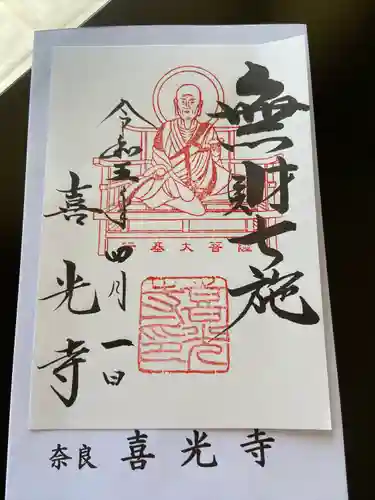 無財七施
行基大菩薩
令和五年四月一日
喜光寺
奈良 喜光寺